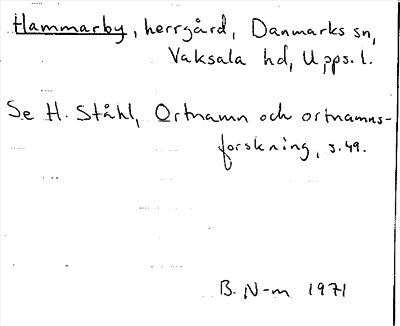 Hammarby, herrgård, Danmarks sn,
Vaksala hd, Upps. l.
Se H. Ståhl, Ortnamn och ortnamns-
forskning, s. 49.
B. N-m 1971